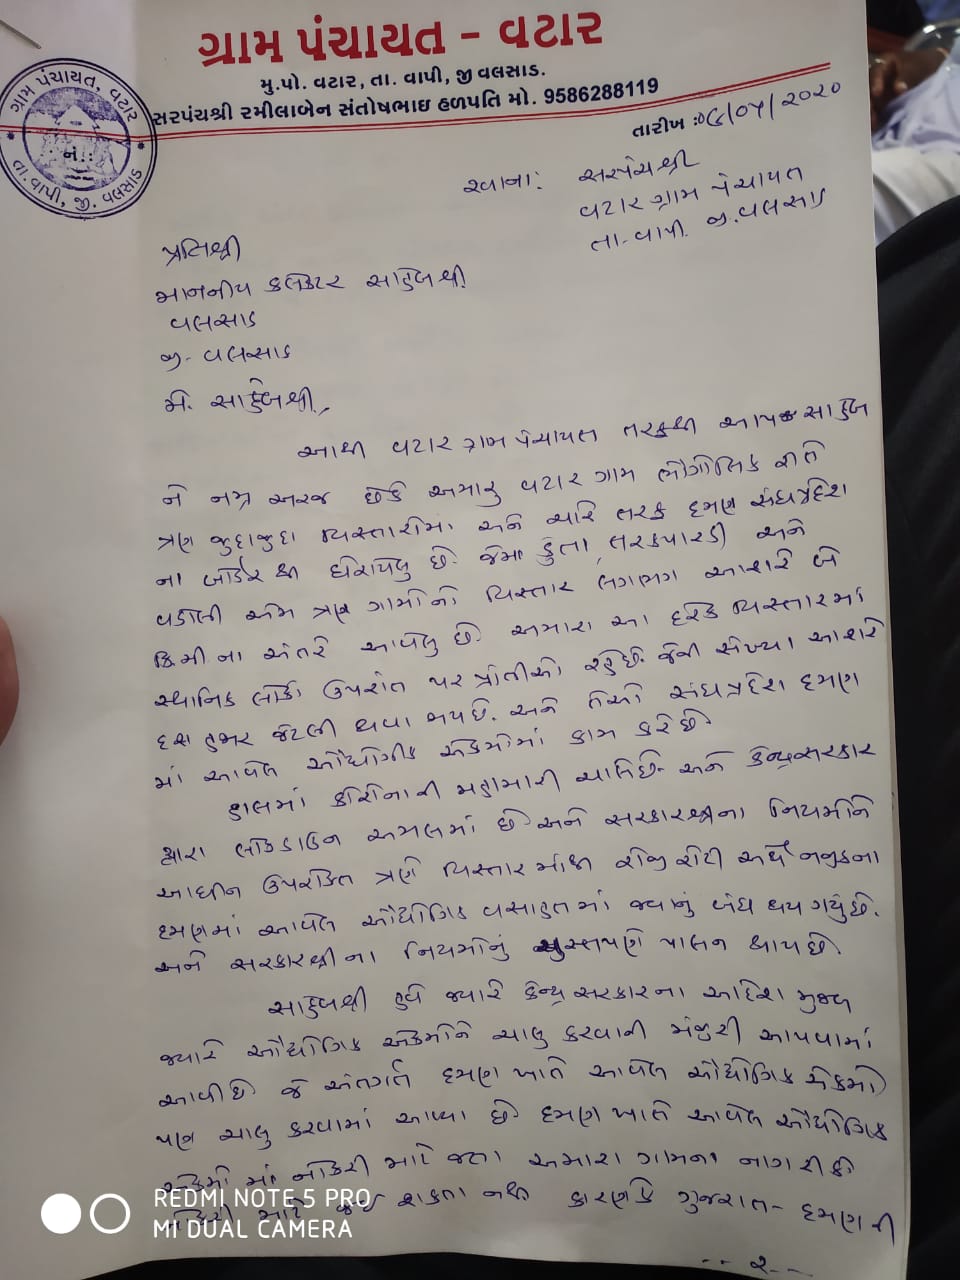 ગ્રામ પંચાયત - વટાર
મુ.પો. વટાર, તા. વાપી, જી વલસાડ.
સરપંચશ્રી રમીલાબેન સંતોષભાઇ હળપતિ મો. 9586288119
ગ્રામ પંચાયત, વટાર
નં.:
તા. વાપી, જી. વલસાડ
તારીખ :૦૬/૦૫/૨૦૨૦
રવાના: સરપંચશ્રી
વટાર ગ્રામ પંચાયત
તા-વાપી. જી.વલસાડ
પ્રતિશ્રી
માનનીય કલેકટર સાહેબશ્રી
વલસાડ
જી- વલસાડ
મે. સાહેબશ્રી,
આથી વટાર ગ્રામ પંચાયત તરફથી આપ સાહેબ
ને નમ્ર અરજ છેકે અમારુ વટાર ગામ ભૌગોલિક રીતે
ત્રણ જુદાજુદા વિસ્તારોમાં અને ચારે તરફ દમણ સંઘપ્રદેશ
ના બોર્ડર થી ઘેરાયેલુ છે. જેમાં કુંતા, તરકપારડી અને
વડોલી એમ ત્રણ ગામોનો વિસ્તાર લગભગ આશરે બે
કિ.મી ના અંતરે આવેલુ છે અમારા આ દરેક વિસ્તારમાં
સ્થાનિક લોકો ઉપરાંત પર પ્રાંતીઓ રહેછે. જેની સંખ્યા આશરે
દશ હજાર જેટલી થવા જાય છે. અને તેઓ સંઘપ્રદેશ દમણ
માં આવેલ ઔદ્યોગીક એકમોમાં કામ કરે છે
હાલમાં કોરોનાની મહામારી ચાલેછે. અને કેન્દ્રસરકાર
દ્વારા લોકડાઉન અમલમાં છે અને સરકારશ્રીના નિયમોને
આધીન ઉપરોકત ત્રણે વિસ્તાર માંથી રોજી રોટી અર્થે નજીકના
દમણમાં આવેલ ઔદ્યોગિક વસાહતમાં જવાનું બંધ થય ગયું છે.
અને સરકારશ્રીના નિયમોનું ચુસ્તપણે પાલન થાય છે.
સાહેબશ્રી હવે જ્યારે કેન્દ્ર સરકારના આદેશ મુજબ
જ્યારે ઔદ્યોગિક એકમોને ચાલુ કરવાની મંજુરી આપવામાં
આવીછે જે અંતર્ગત દમણ ખાતે આવેલ ઔદ્યોગિક એકમો
પણ ચાલુ કરવામાં આવ્યા છે દમણ ખાતે આવેલ ઔદ્યોગિક
એકમો માં નોકરી માટે જતા અમારા ગામના નાગરીકો
નોકરી માટે જઈ શકતા નથી કારણકે ગુજરાત- દમણની
-- ૨--
REDMI NOTE 5 PRO
MI DUAL CAMERA